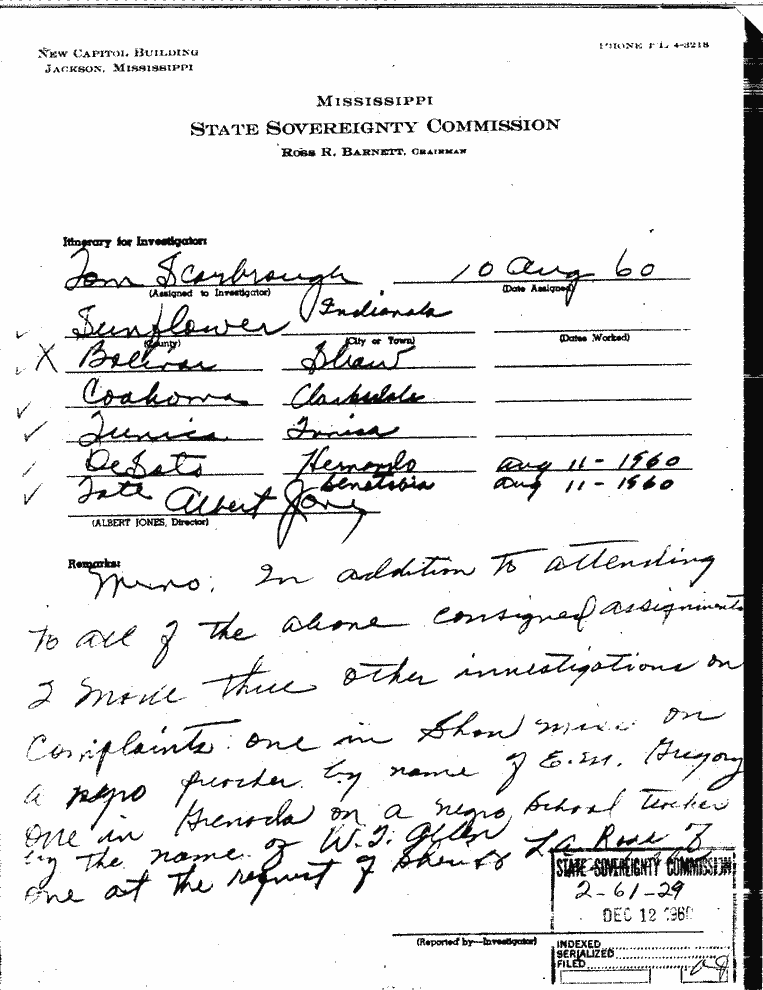 NEW CAPITOL BUILDING
JACKSON, MISSISSIPPI
PHONE FL 4-3218
MISSISSIPPI
STATE SOVEREIGNTY COMMISSION
ROSS R. BARNETT, CHAIRMAN
Itinerary for Investigator:
Tom Scarbrough 10 Aug 60
(Assigned to Investigator) (Date Assigned)
Sunflower Indianola
(County) (City or Town) (Dates Worked)
X Bolivar Shaw
Coahoma Clarksdale
Tunica Tunica
DeSoto Hernando Aug 11-1960
Tate Senatobia Aug 11-1960
Albert Jones
(ALBERT JONES, Director)
Remarks:
Memo: In addition to attending
to all of the above consigned assignments
I made three other investigations on
complaints: one in Shaw Miss. on
a negro preacher by name of E.M. Gregory
one in Grenada on a negro School teacher
by the name of W.T. Allen
one at the request of Sheriff
STATE SOVEREIGNTY COMMISSION
2-61-29
DEC 12 1960
(Reported by—Investigator)
INDEXED
SERIALIZED
FILED